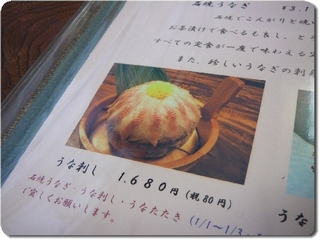 石焼うなぎ ¥3,1
石焼でこんがりと焼
お茶漬けで食べるも良し、と
すべての定食が一度で味わえる
また、珍しいうなぎの刺
うな刺し 1,680円 (税80円)
石焼うなぎ・うな刺し・うなたたき
で宜しくお願いします。 (1/1~1/3
うな